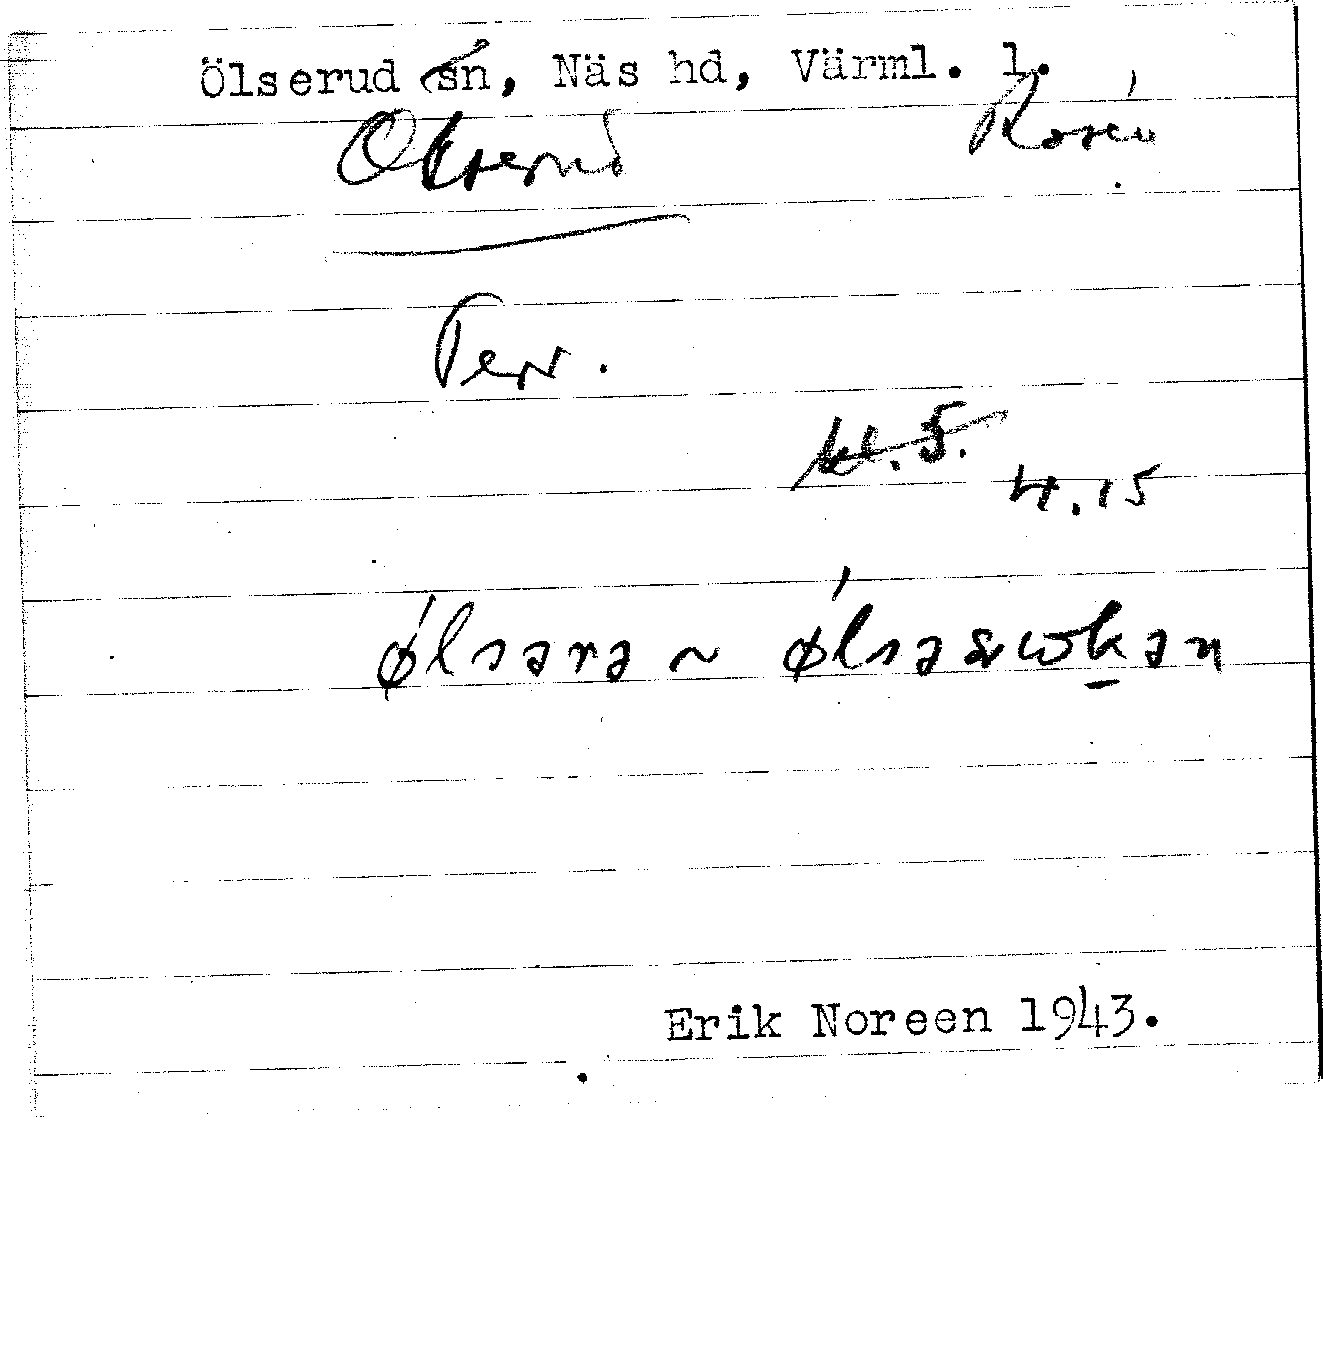 Ölserud sn, Näs hd, Värml. l.
Ölserud Rosén
Terr.
kl. 5.
4.15
ø'lsərə ~ ø'lsəs
Erik Noreen 1943.